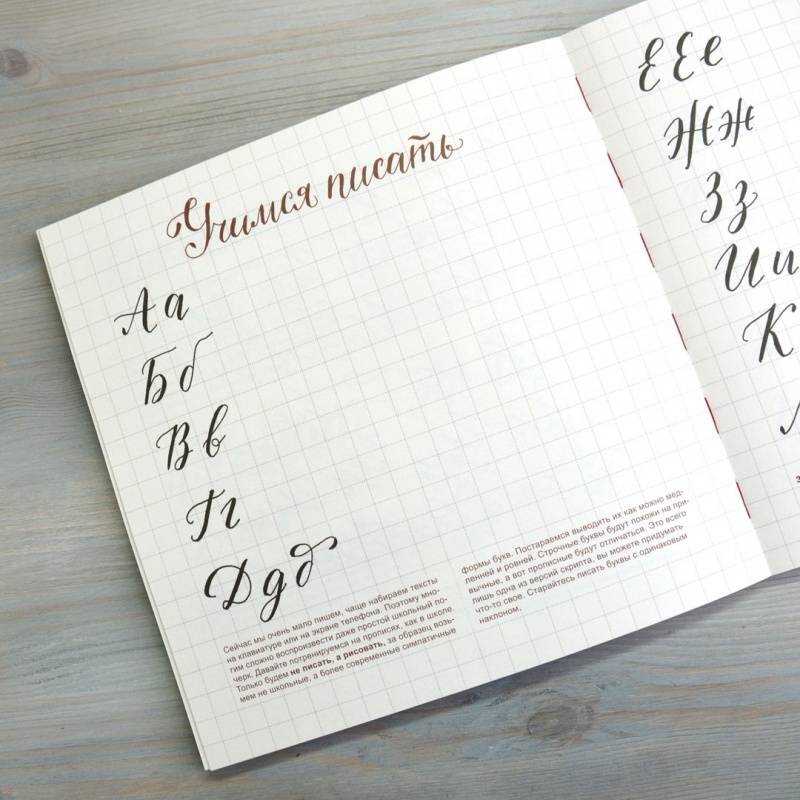 Учимся писать
А а
Б б
В в
Г г
Д д д
Сейчас мы очень мало пишем, чаще набираем тексты
на клавиатуре или на экране телефона. Поэтому мно-
гим сложно воспроизвести даже простой школьный по-
черк. Давайте потренируемся на прописях, как в школе.
Только будем не писать, а рисовать, за образец возь-
мем не школьные, а более современные симпатичные
формы букв. Постараемся выводить их как можно мед-
ленней и ровней. Строчные буквы будут похожи на при-
вычные, а вот прописные будут отличаться. Это всего
лишь одна из версий скрипта, вы можете придумать
что-то свое. Старайтесь писать буквы с одинаковым
наклоном.
Е Е е
Ж ж
З з
И и
К